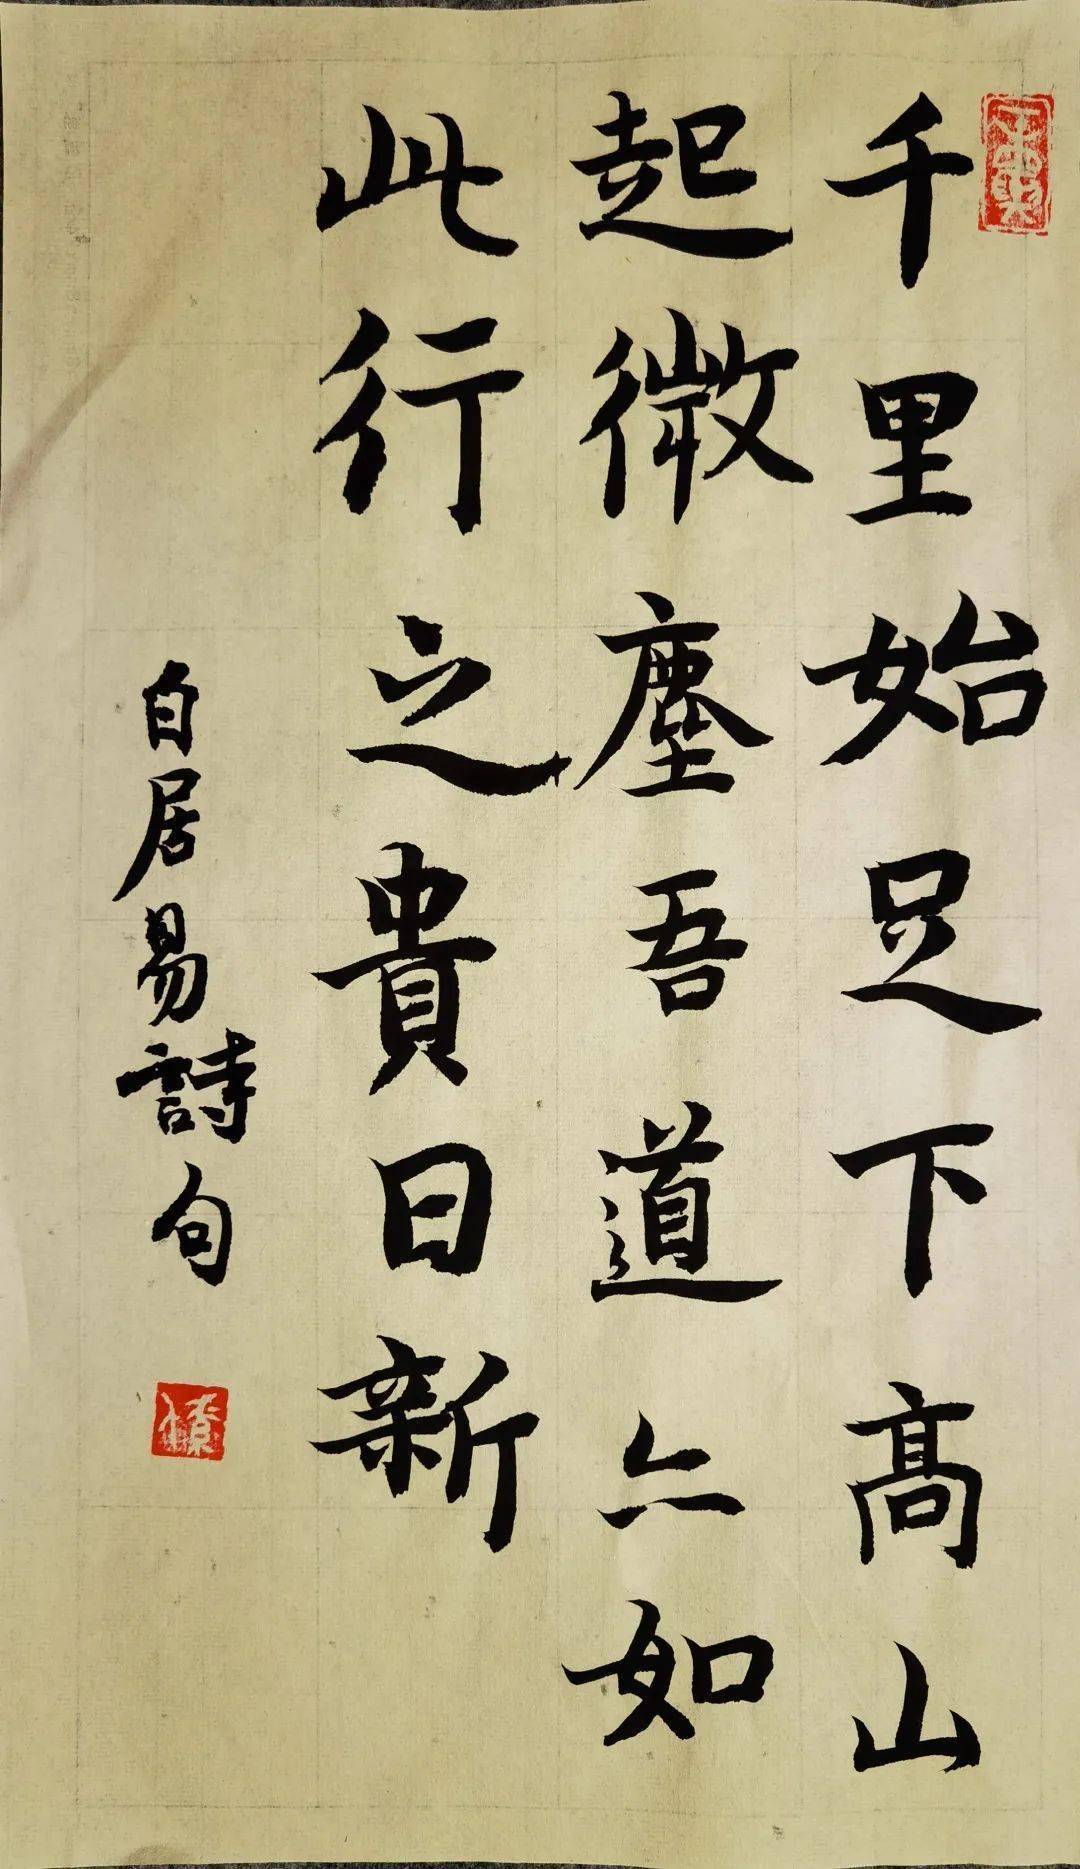 千里始足下高山
起微塵吾道亦如
此行之貴日新
白居易詩句